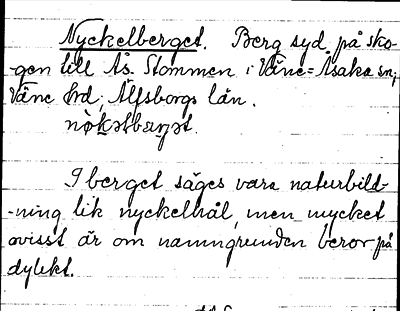 Nyckelberget. Berg syd på sko-
-gen till Ås. Stommen i Väne-Åsaka sn;
Väne hd; Älfsborgs län.
I berget säges vara naturbild-
-ning lik nyckelhål, men mycket
ovisst är om namngrunden beror på
dylikt.